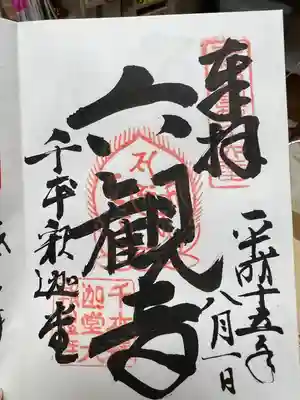 奉拝
平成十五年
八月一日
六観音
千本釈迦堂